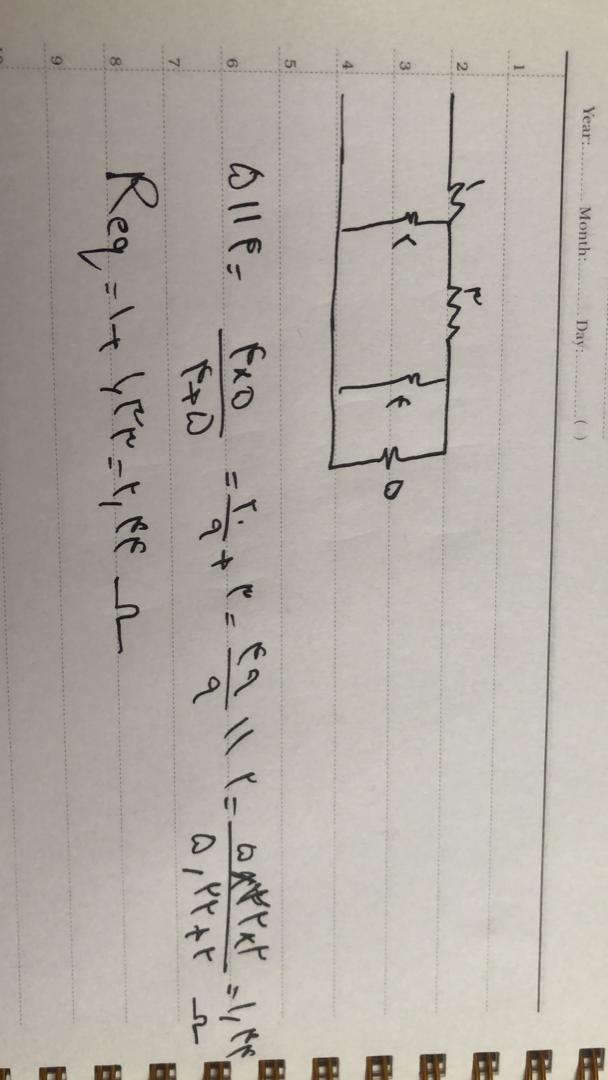 Year: Month: Day: ( )
1
2
3
4
5
6
7
8
9
۱ ۳
۲ ۴ ۵
۵ || ۴ = ۴×۵ / ۴+۵ = ۲۰ / ۹ + ۳ = ۴۹ / ۹ || ۲ = ۵,۲۲×۲ / ۵,۲۲+۲ = ۱,۴۴ Ω
Req = ۱ + ۱,۴۴ = ۲,۴۴ Ω